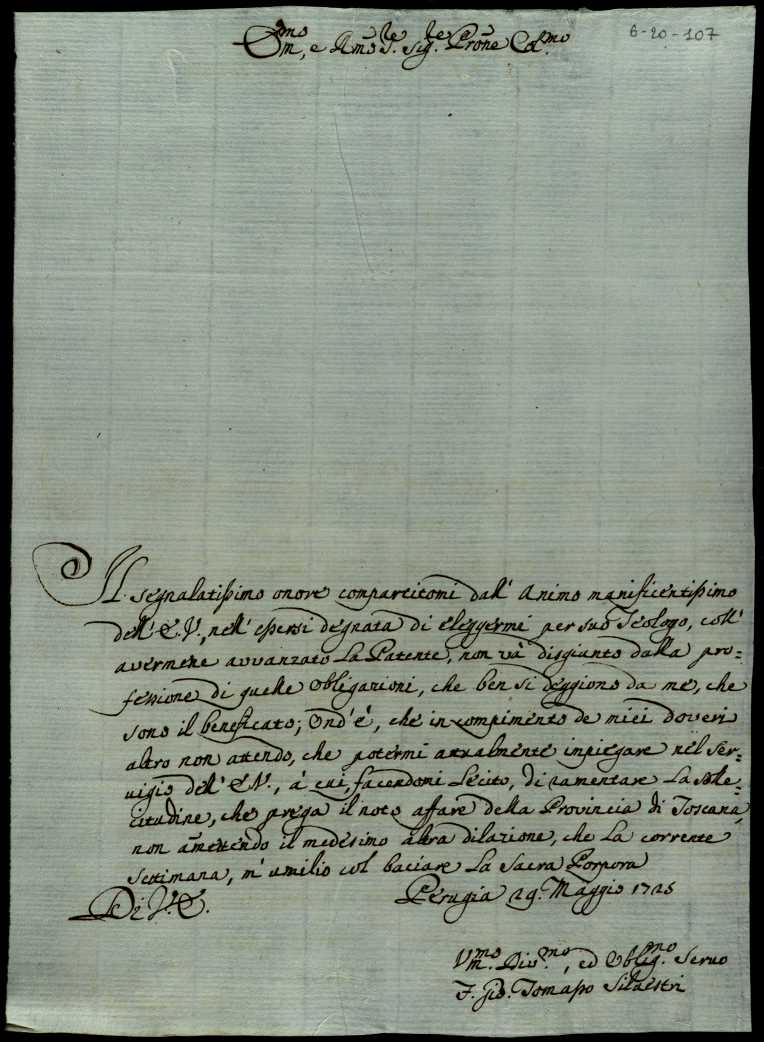 6-20-107
Em̃mo, e Rmõ S.re Sig.re Prõne Col.mo
Il segnalatissimo onore compartitomi dall' Animo manificentissimo
dell' E. V., nell' essersi degnata di eleggermi per suo Teologo, coll'
avermene avvanzato La Patente, non và disgiunto dalla pro=
fessione di quelle obligazioni, che ben si deggiono da me, che
sono il beneficato; Ond' è, che in compimento de miei doveri
altro non attendo, che potermi attualmente impiegare nel Ser=
vigio dell' E. V., à cui, facendomi Lecito, di ramentare La Solle=
citudine, che prega il noto affare della Provincia di Toscana,
non am̃ettendo il medesimo altra dilazione, che La corrente
Settimana, m' umilio col baciare La Sacra Porpora
Di V. E. Perugia 29. Maggio 1725
Vm̃.mo Div.mo, ed Oblig.mo Servo
F. Gio. Tomasso Silvestri